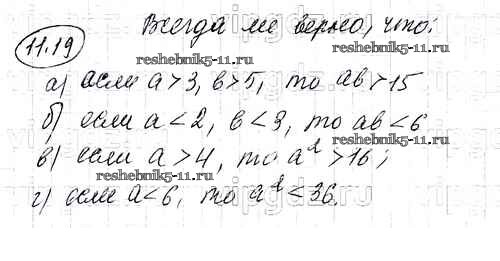 11.19 Всегда ли верно, что:
а) если а > 3, в > 5, то ав > 15
б) если а < 2, в < 3, то ав < 6
в) если а > 4, то а² > 16;
г) если а < 6, то а² < 36.
reshebnik5-11.ru
reshebnik5-11.ru
reshebnik5-11.ru
reshebnik5-11.ru